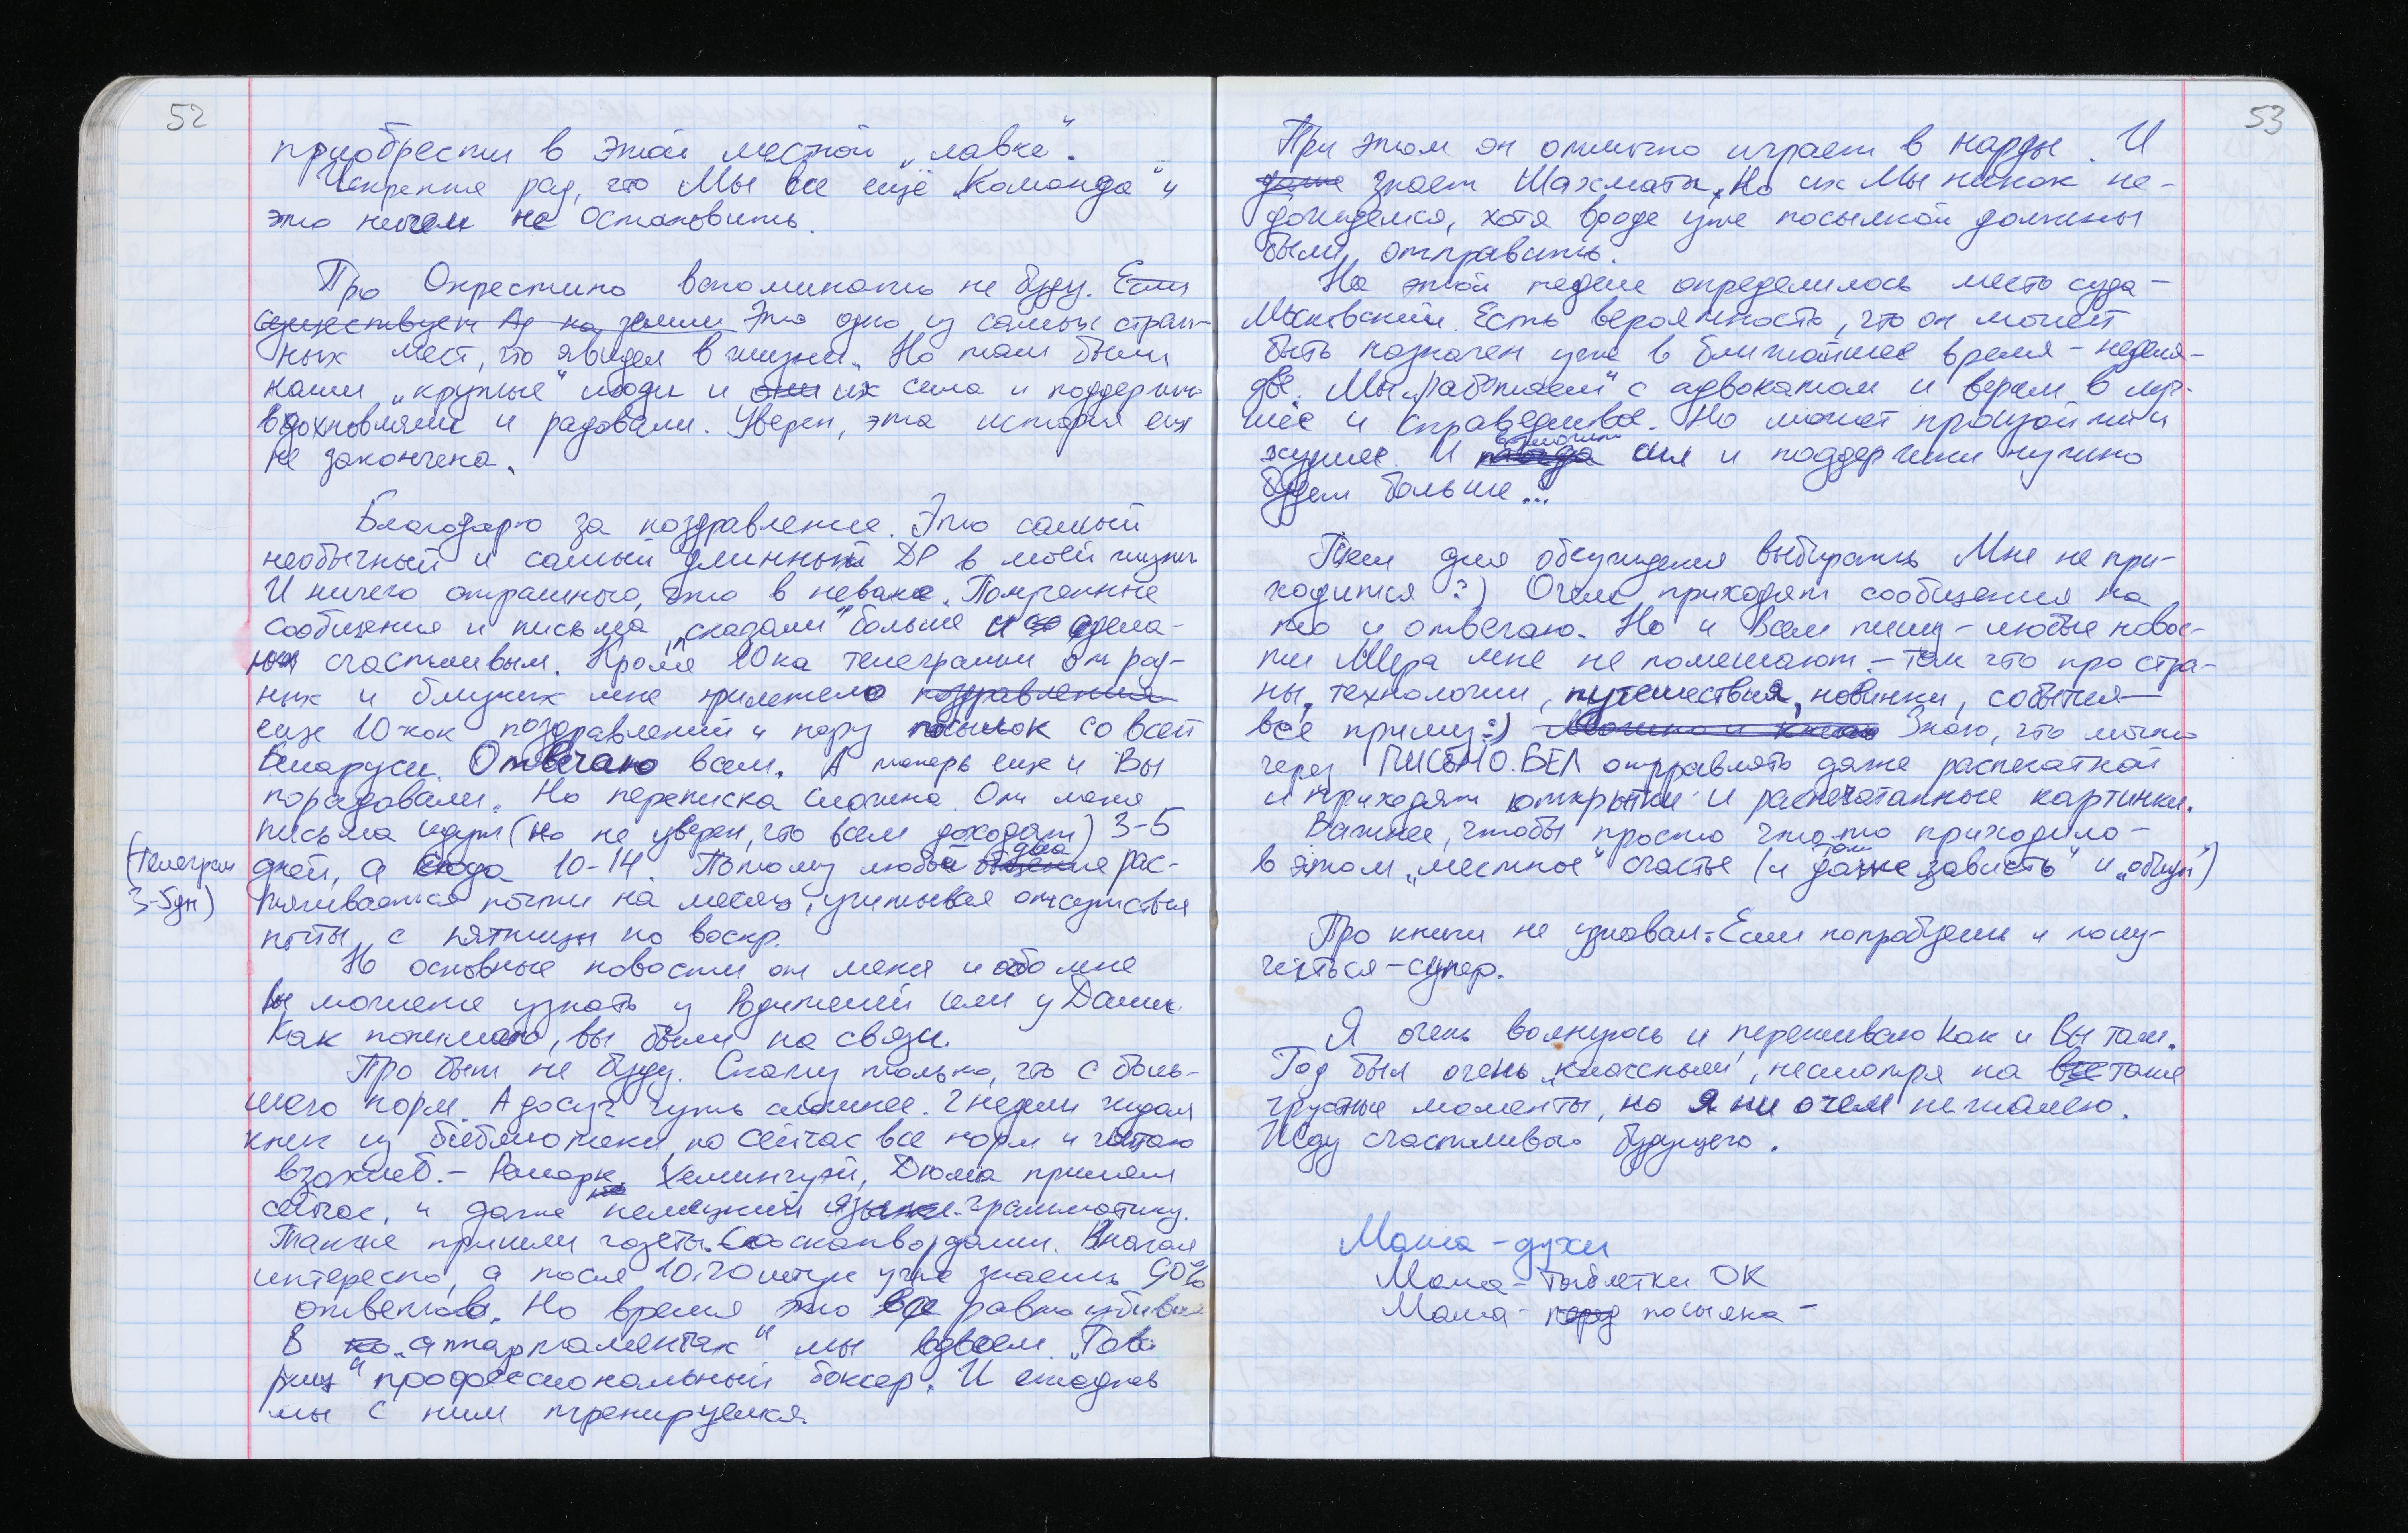 52
приобрести в этой местной „лавке".
Искренне рад, что Мы все ещё „Команда" и
это ничем не остановить.
Про Окрестино вспоминать не буду. Если
существует Ад на земли Это одно из самых стран-
ных мест, что я видел в жизни. Но там были
наши „крутые" люди и они их сила и поддержка
вдохновляли и радовали. Уверен, эта история еще
не закончена.
Благодарю за поздравление. Это самый
необычный и самый длинный ДР в моей жизни
И ничего страшного, что в неволе. Полученные
сообщения и письма „сказали" больше и сдела-
ли счастливым. Кроме 10ка телеграмм от род-
ных и близких мне прилетело поздравления
еще 10-ок поздравлений и пару посылок со всей
Беларуси. Отвечаю всем. А теперь еще и Вы
порадовали. Но переписка сложна. От меня
письма идут (но не уверен, что всем доходят) 3-5
(Телеграм
3-5дн)
дней, а сюда 10-14. Потому любой рас-
тягивается почти на месяц, учитывая отсутствия
почты с пятницы по воскр.
Но основные новости от меня и обо мне
вы можете узнать у Родителей или у Даши.
Как понимаю, вы были на связи.
Про быт не буду. Скажу только, что с боль-
шего норм. А досуг чуть сложнее. 2 недели ждал
книг из библиотеки, но сейчас все норм и читаю
взахлеб. - Ремарк, Хемингуэй, Дюма принят
сейчас, и даже немецкий языке. грамматику.
Также пришли газеты. Со сканвордами. Вначале
интересно, а после 10-20 штук уже знаешь 90%
ответов. Но время это все равно убивает
В „аппартаментах" мы вдвоем. „Това
рищ" профессиональный боксер. И ежеднев
мы с ним тренируемся.
53
При этом он отлично играет в нарды. И
даже знает Шахматы. Но их Мы никак не-
дождемся, хотя вроде уже посылкой должны
были отправить.
На этой неделе определилось место суда -
Московский. Есть вероятность, что он может
быть назначен уже в ближайшее время - неделя-
две. Мы „работаем" с адвокатом и верим в луч-
шее и справедливое. Но может произойти и
худшее. И сил и поддержки нужно
будет больше...
Тем для обсуждения выбирать Мне не при-
ходится :) О чем приходят сообщения на
то и отвечаю. Но и Всем пишу - любые новос-
ти Мира мне не помешают - так что про стра-
ны, технологии, путешествия, новинки, события -
все приму :) Можно и книги Знаю, что можно
через ПИСЬМО.БЕЛ отправлять даже распечаткой
и приходят открытки и распечатанные картинки.
Важнее, чтобы просто что-то приходило -
в этом „местное" счастье (и даже там „зависть" и „общун")
Про книги не узнавал. Если попробуешь и полу-
читься - супер.
Я очень волнуюсь и переживаю как и Вы там.
Год был очень „классным", несмотря на все такие
грустные моменты, но я ни о чем не жалею.
Иду счастливого будущего.
Мама - духи
Мама - таблетки ОК
Мама - перед посылка -